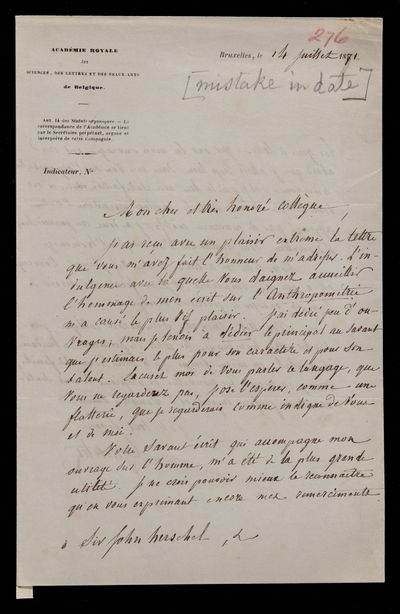 276
ACADÉMIE ROYALE
des
SCIENCES, DES LETTRES ET DES BEAUX-ARTS
de Belgique.
Bruxelles, le 14 juillet 1871.
[mistake in date]
ART. 14 des Statuts organiques. — La
correspondance de l'Académie se tient
par le Secrétaire perpétuel, organe et
interprète de cette Compagnie.
Indicateur, No
Mon cher et très honoré collègue,
j'ai reçu avec un plaisir extrême la lettre
que vous m'avez fait l'honneur de m'adresser. L'in-
dulgence avec laquelle vous daignez accueillir
l'hommage de mon écrit sur l'Anthropométrie
m'a causé le plus vif plaisir. J'ai dédié peu d'ou-
vrages, mais je tenais à dédier le principal au savant
que j'estimais le plus pour son caractère et pour son
talent. Excusez moi de vous parler ce langage, que
vous ne regarderez pas, j'ose l'espérer, comme une
flatterie, que je regarderais comme indigne de vous
et de moi.
Votre savant écrit qui accompagne mon
ouvrage sur l'homme, m'a été de la plus grande
utilité. Je ne crois pouvoir mieux le reconnaître
qu'en vous exprimant encore mes remerciments.
à Sir John Herschel, &